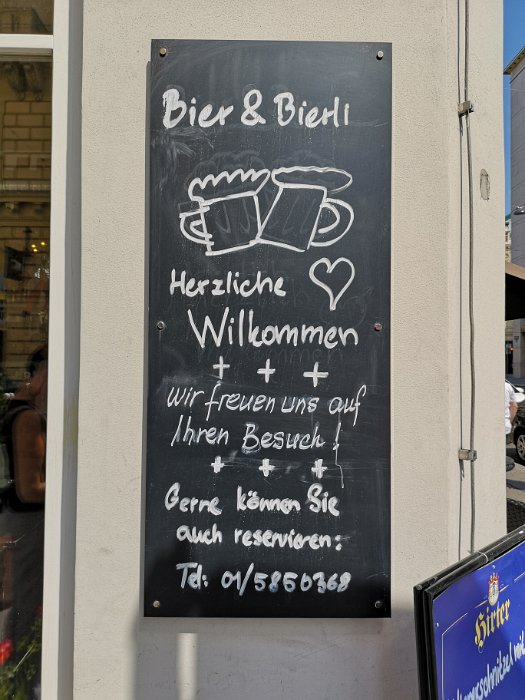 Bier & Bierli
Herzliche
Willkommen
+ + +
wir freuen uns auf
Ihren Besuch!
+ + +
Gerne können Sie
auch reservieren:
Tel: 01/5850368
Hirter